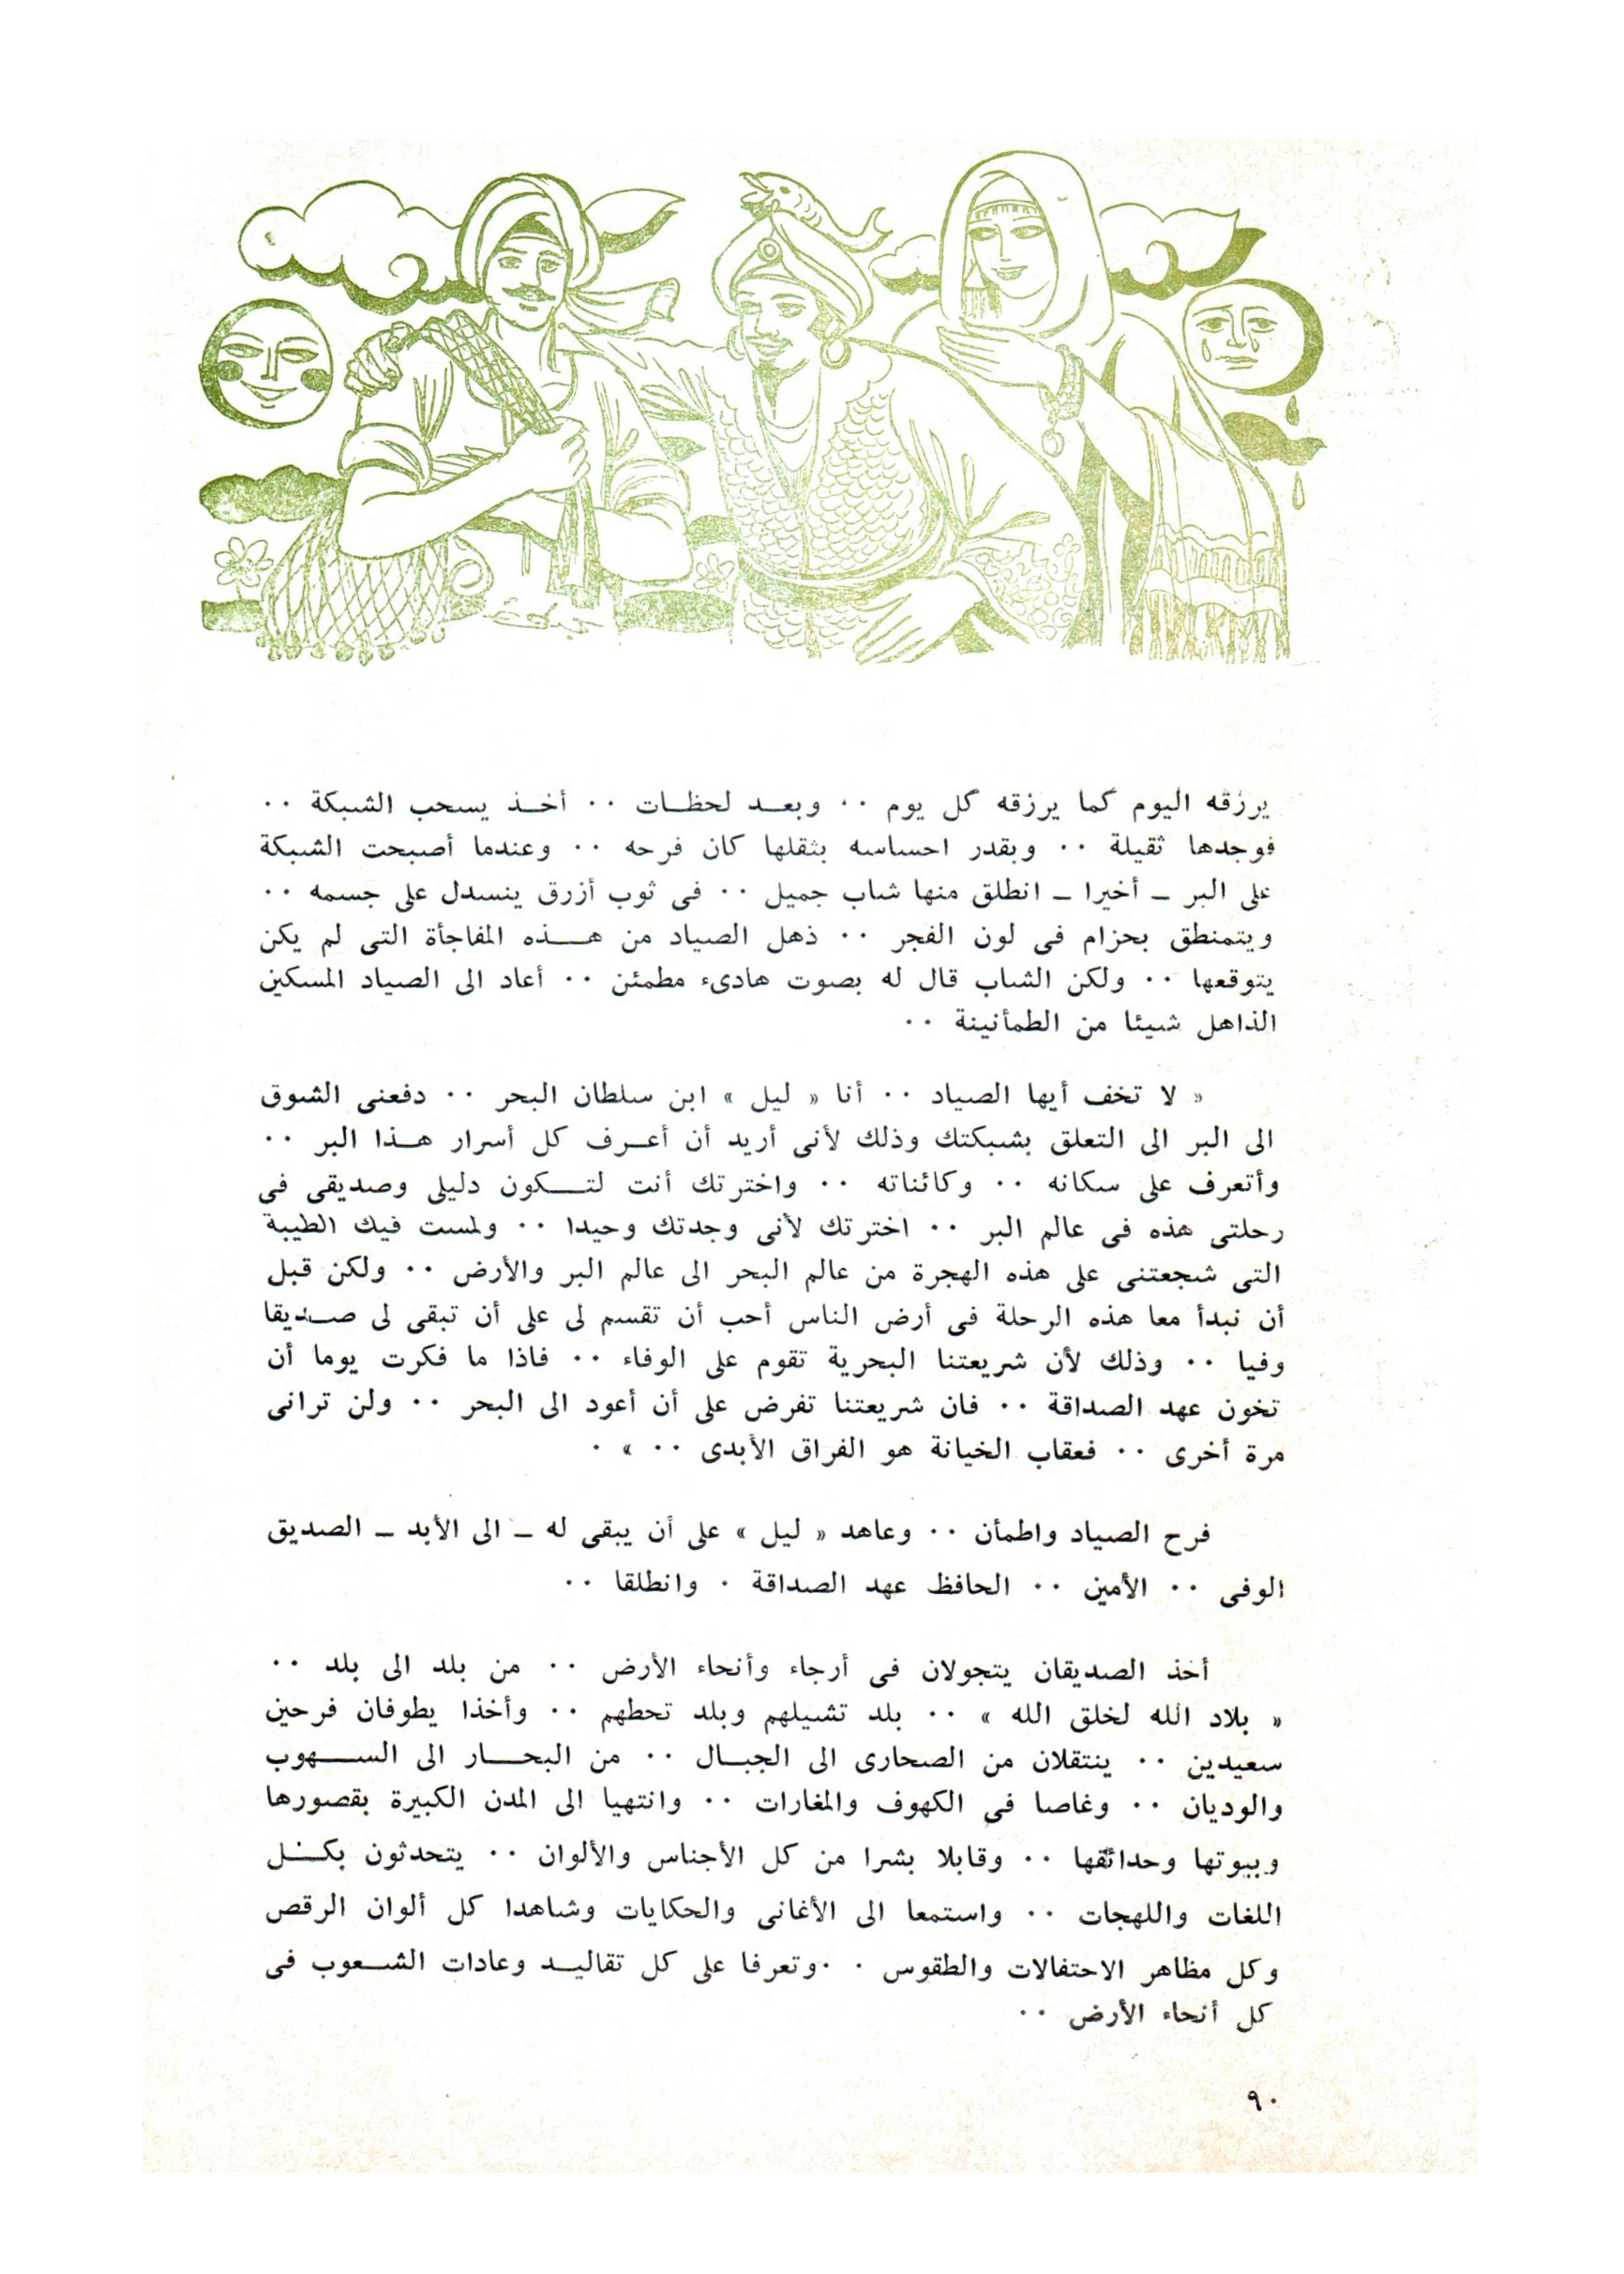 يرزقه اليوم كما يرزقه كل يوم ·· وبعد لحظات ·· أخذ يسحب الشبكة ··
فوجدها ثقيلة ·· وبقدر احساسه بثقلها كان فرحه ·· وعندما أصبحت الشبكة
على البر ــ أخيرا ــ انطلق منها شاب جميل ·· فى ثوب أزرق ينسدل على جسمه ··
ويتمنطق بحزام فى لون الفجر ·· ذهل الصياد من هذه المفاجأة التى لم يكن
يتوقعها ·· ولكن الشاب قال له بصوت هادىء مطمئن ·· أعاد الى الصياد المسكين
الذاهل شيئا من الطمأنينة ··
« لا تخف أيها الصياد ·· أنا « ليل » ابن سلطان البحر ·· دفعنى الشوق
الى البر الى التعلق بشبكتك وذلك لأنى أريد أن أعرف كل أسرار هذا البر ··
وأتعرف على سكانه ·· وكائناته ·· واخترتك أنت لتكون دليلى وصديقى فى
رحلتى هذه فى عالم البر ·· اخترتك لأنى وجدتك وحيدا ·· ولمست فيك الطيبة
التى شجعتنى على هذه الهجرة من عالم البحر الى عالم البر والأرض ·· ولكن قبل
أن نبدأ معا هذه الرحلة فى أرض الناس أحب أن تقسم لى على أن تبقى لى صديقا
وفيا ·· وذلك لأن شريعتنا البحرية تقوم على الوفاء ·· فاذا ما فكرت يوما أن
تخون عهد الصداقة ·· فان شريعتنا تفرض على أن أعود الى البحر ·· ولن ترانى
مرة أخرى ·· فعقاب الخيانة هو الفراق الأبدى ·· » ·
فرح الصياد واطمأن ·· وعاهد « ليل » على أن يبقى له ــ الى الأبد ــ الصديق
الوفى ·· الأمين ·· الحافظ عهد الصداقة · وانطلقا ··
أخذ الصديقان يتجولان فى أرجاء وأنحاء الأرض ·· من بلد الى بلد ··
« بلاد الله لخلق الله » ·· بلد تشيلهم وبلد تحطهم ·· وأخذا يطوفان فرحين
سعيدين ·· ينتقلان من الصحارى الى الجبال ·· من البحار الى السهوب
والوديان ·· وغاصا فى الكهوف والمغارات ·· وانتهيا الى المدن الكبيرة بقصورها
وبيوتها وحدائقها ·· وقابلا بشرا من كل الأجناس والألوان ·· يتحدثون بكل
اللغات واللهجات ·· واستمعا الى الأغانى والحكايات وشاهدا كل ألوان الرقص
وكل مظاهر الاحتفالات والطقوس · ·وتعرفا على كل تقاليد وعادات الشعوب فى
كل أنحاء الأرض ··
٩٠